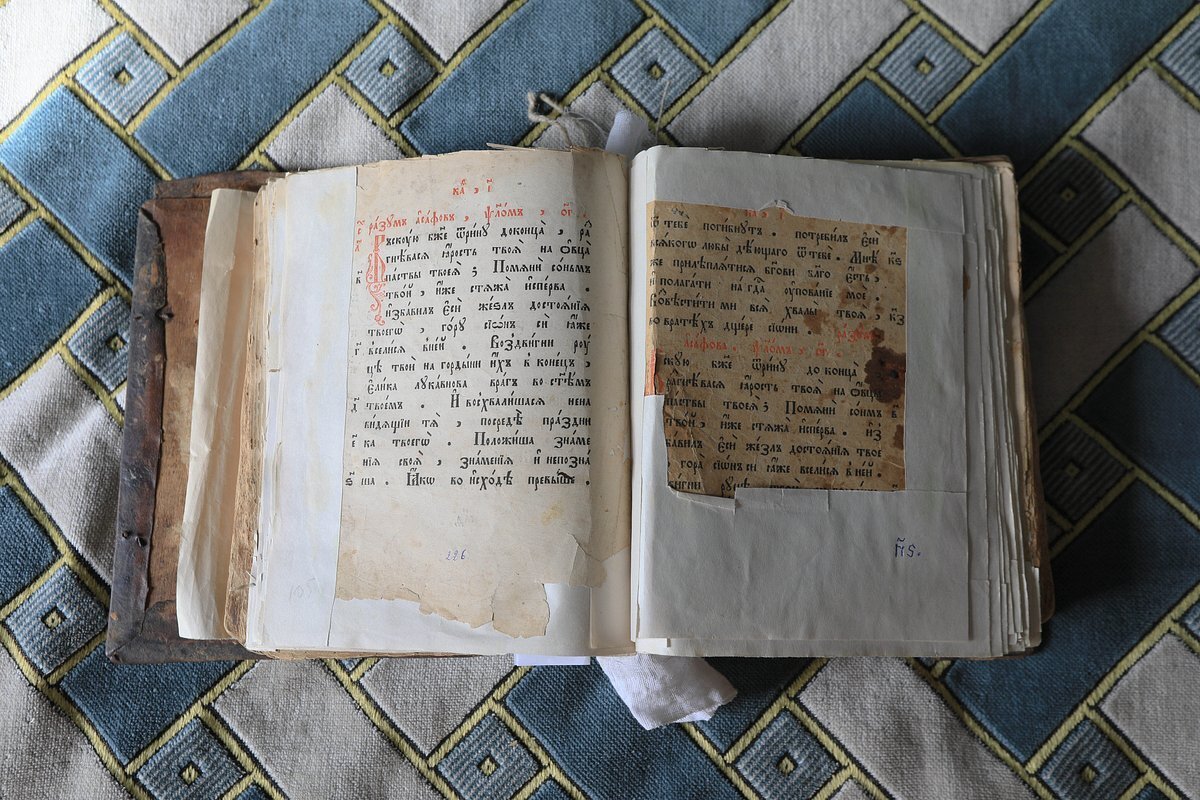 каⷴ , і҃
разꙋмъ а҆са́фовъ , ѱало́мъ , ѻ҃г
Вскꙋю бж҃е ѿри́нꙋ доконца̀ ,
гнѣ́васѧ ꙗ҆́рость твоѧ̀ на ѻ҆́вца
паствы твоеѧ̀ ; Помѧнѝ со́нмъ
тво́й , и҆́же стѧжа̀ и҆спе́рва .
и҆зба́вилъ є҆сѝ же́злъ достоѧ́нїѧ
твоегѡ̀ , го́рꙋ сїѡ́нъ сѝ ꙗ҆́же
г҃ всели́сѧ в̾не́й . Воздви́гни рꙋ́
цѣ̀ твоѝ на горды́ни и҆́хъ в̾ коне́цъ ,
є҆ли́ка лꙋка́внова вра́гъ во ст҃ѣ́мъ
д҃ твое́мъ . И҆ восхвали́шасѧ нена
ви́дѧщїи тѧ̀ , посредѣ̀ пра́здни
є҃ ка твоегѡ̀ . Положи́ша зна́ме
нїѧ своѧ̀ , зна́менїѧ и҆ непозна́
ѕ҃ ша . Ꙗ҆́кѡ во и҆схо́дѣ превы́ше .
226
ѿ тебѐ поги́бнꙋтъ . потреби́лъ є҆сѝ
всѧ́когѡ любы̀ дѣ́ющаго ѿтебѐ . Мнѣ́
же прилѣплѧ́тисѧ бг҃ови бл҃го є҆́сть ,
и҆ полага́ти на гд҃а ᲂу҆пова́нїе моѐ .
возвѣсти́ти мѝ всѧ̀ хвалы̀ твоѧ̀ ,
во вратѣ́хъ дще́ре сїѡ́ни
разꙋмъ
а҆са́фова , ѱало́мъ , ѻ҃г .
скꙋю бж҃е ѿри́нꙋ до конца̀
разгнѣ́васѧ ꙗ҆́рость твоѧ̀ на ѻ҆́вца
паствы твоеѧ̀ ; Помѧнѝ со́нмъ в҃
тво́й , и҆́же стѧжа̀ и҆спе́рва . и҆з
ба́вилъ є҆сѝ же́злъ достоѧ́нїѧ твое
гора̀ сїѡ́нъ сѝ ꙗ҆́же всели́сѧ в̾ не́й .
н҃ѕ.